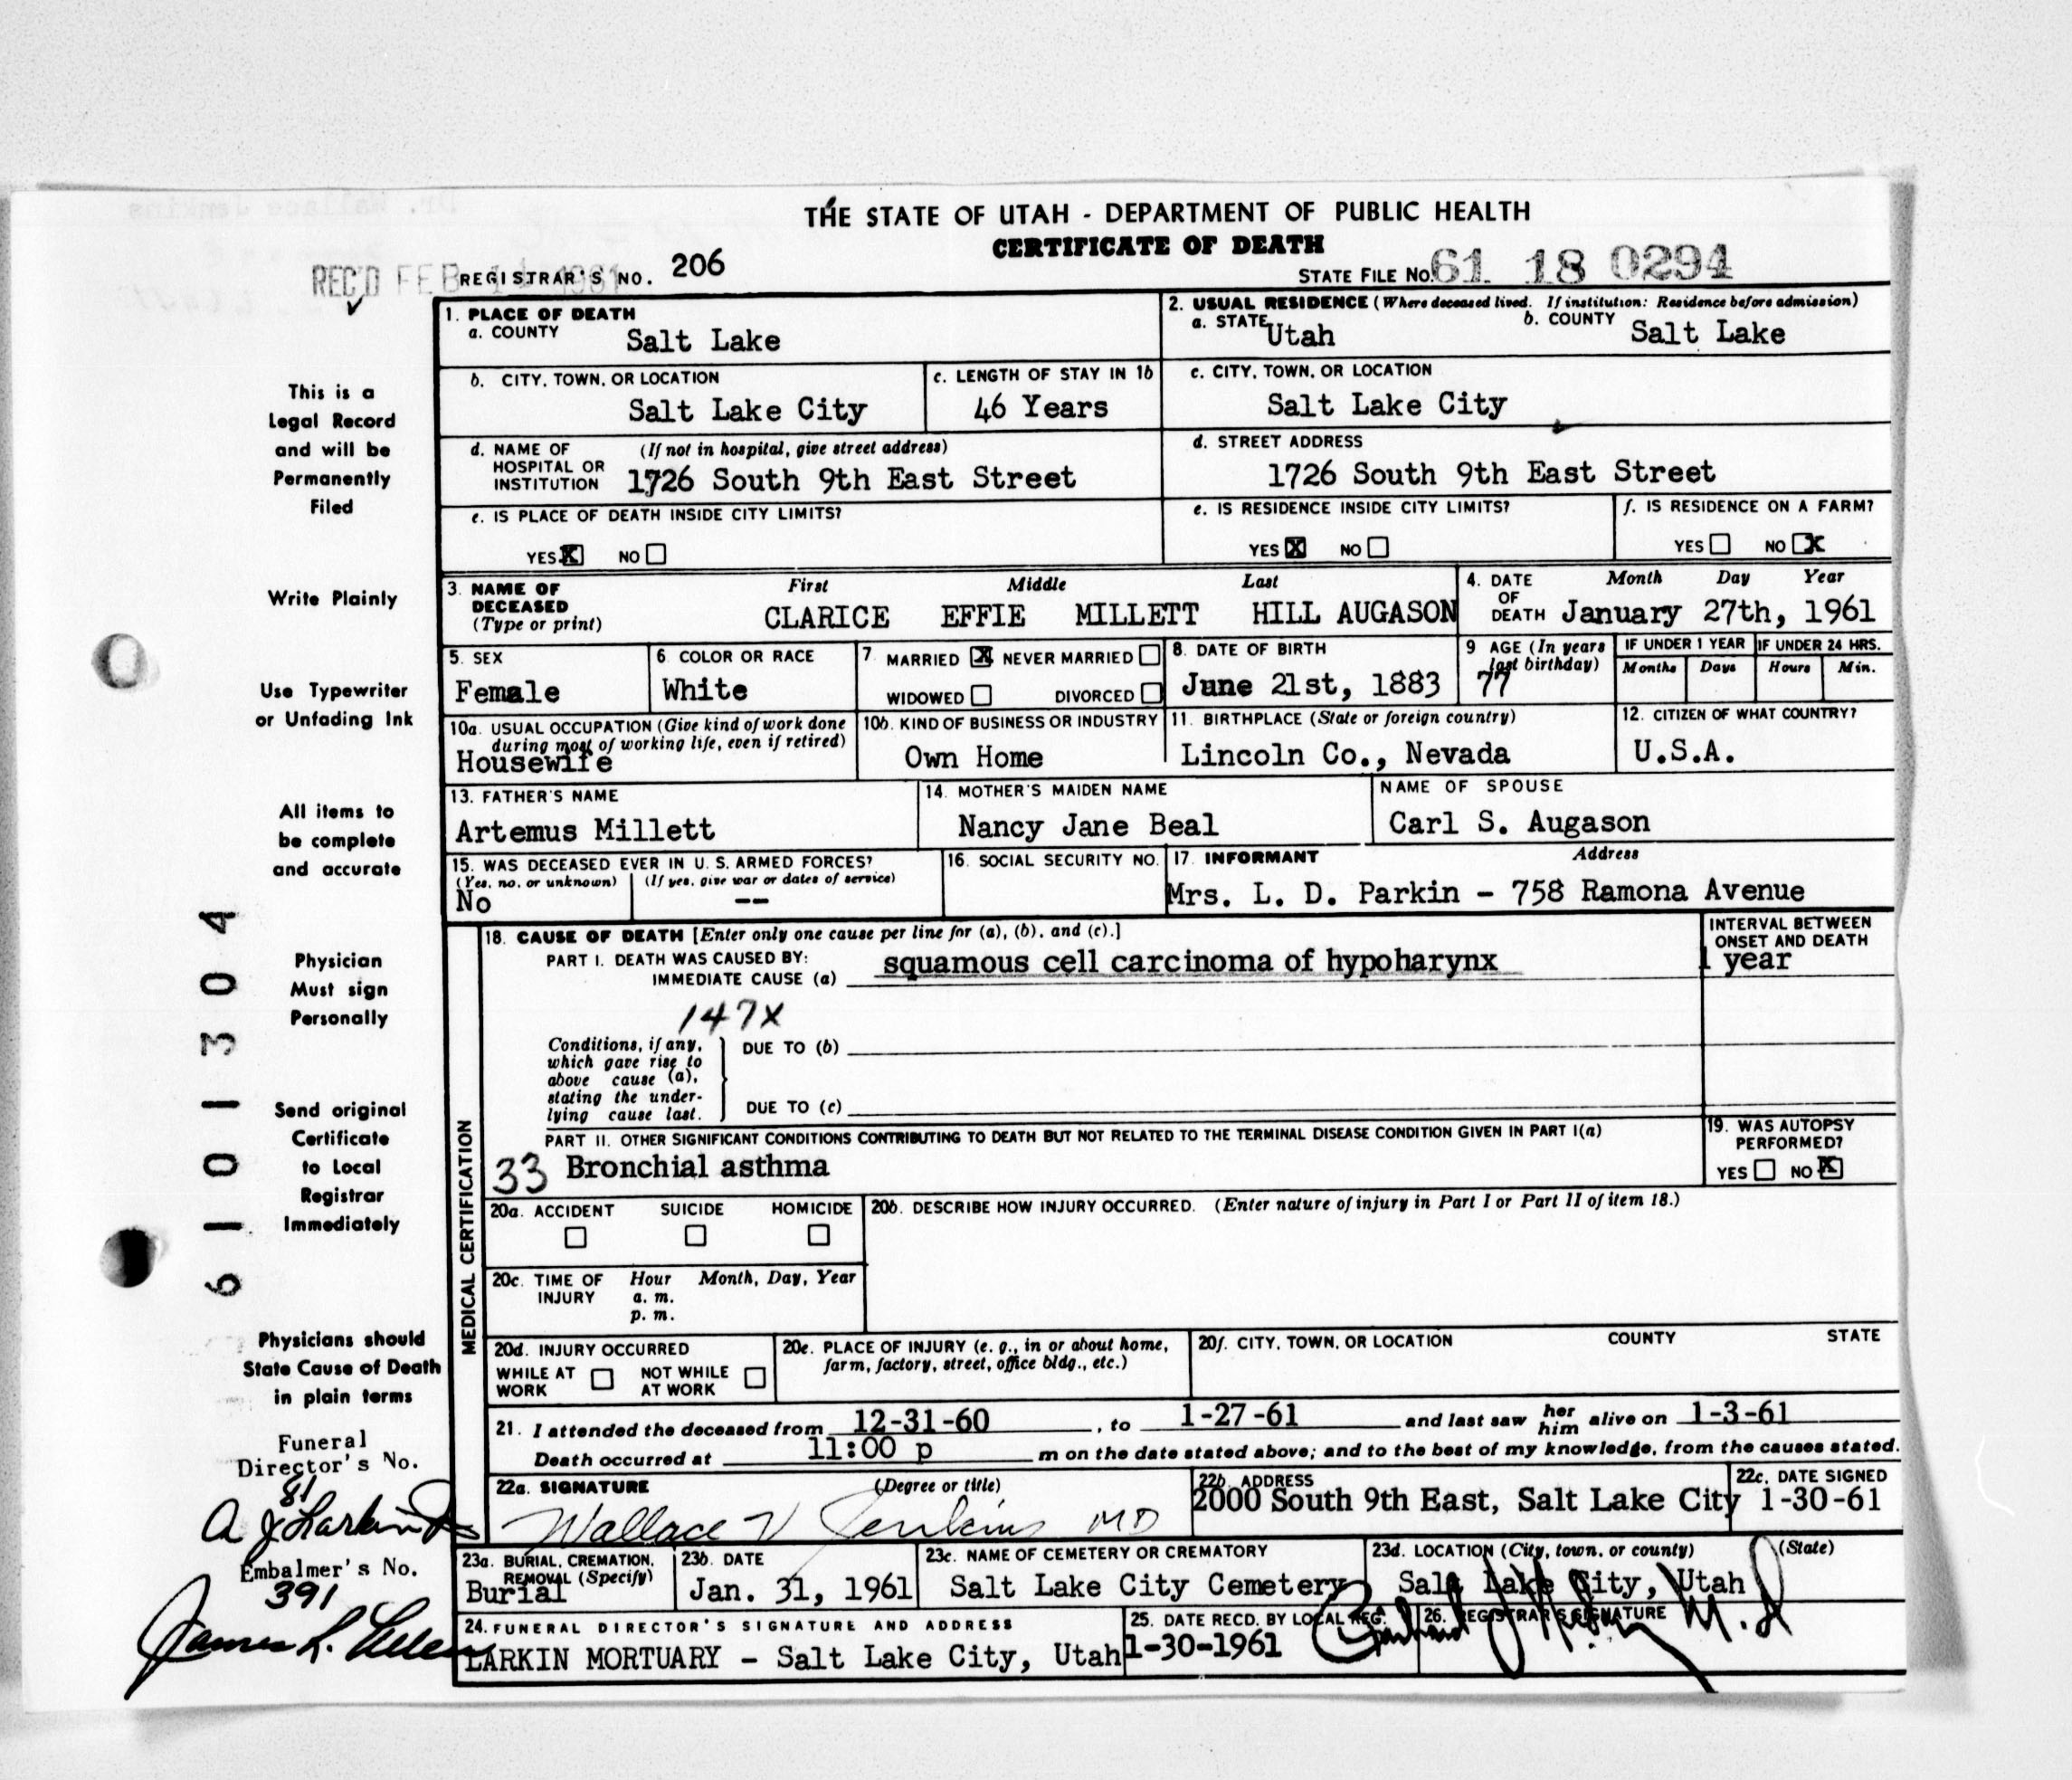 THE STATE OF UTAH - DEPARTMENT OF PUBLIC HEALTH
CERTIFICATE OF DEATH
REC'D FEB 1961 REGISTRAR'S NO. 206 STATE FILE NO. 61 18 0294
1. PLACE OF DEATH
a. COUNTY Salt Lake
2. USUAL RESIDENCE (Where deceased lived. If institution: Residence before admission)
a. STATE Utah b. COUNTY Salt Lake
b. CITY, TOWN, OR LOCATION Salt Lake City
c. LENGTH OF STAY IN 1b 46 Years
c. CITY, TOWN, OR LOCATION
Salt Lake City
d. NAME OF HOSPITAL OR INSTITUTION (If not in hospital, give street address)
1726 South 9th East Street
d. STREET ADDRESS
1726 South 9th East Street
e. IS PLACE OF DEATH INSIDE CITY LIMITS?
YES X NO
e. IS RESIDENCE INSIDE CITY LIMITS?
YES X NO
f. IS RESIDENCE ON A FARM?
YES NO X
3. NAME OF DECEASED (Type or print) First Middle Last
CLARICE EFFIE MILLETT HILL AUGASON
4. DATE OF DEATH Month Day Year
January 27th, 1961
5. SEX
Female
6. COLOR OR RACE
White
7. MARRIED X NEVER MARRIED
WIDOWED DIVORCED
8. DATE OF BIRTH
June 21st, 1883
9 AGE (In years last birthday)
77
IF UNDER 1 YEAR
Months Days
IF UNDER 24 HRS.
Hours Min.
10a. USUAL OCCUPATION (Give kind of work done during most of working life, even if retired)
Housewife
10b. KIND OF BUSINESS OR INDUSTRY
Own Home
11. BIRTHPLACE (State or foreign country)
Lincoln Co., Nevada
12. CITIZEN OF WHAT COUNTRY?
U.S.A.
13. FATHER'S NAME
Artemus Millett
14. MOTHER'S MAIDEN NAME
Nancy Jane Beal
NAME OF SPOUSE
Carl S. Augason
15. WAS DECEASED EVER IN U. S. ARMED FORCES?
(Yes, no, or unknown) (If yes, give war or dates of service)
No --
16. SOCIAL SECURITY NO.
17. INFORMANT Address
Mrs. L. D. Parkin - 758 Ramona Avenue
MEDICAL CERTIFICATION
18. CAUSE OF DEATH [Enter only one cause per line for (a), (b), and (c).]
PART I. DEATH WAS CAUSED BY:
IMMEDIATE CAUSE (a) squamous cell carcinoma of hypoharynx
INTERVAL BETWEEN ONSET AND DEATH
1 year
147X
Conditions, if any, which gave rise to above cause (a), stating the under-lying cause last.
DUE TO (b)
DUE TO (c)
PART II. OTHER SIGNIFICANT CONDITIONS CONTRIBUTING TO DEATH BUT NOT RELATED TO THE TERMINAL DISEASE CONDITION GIVEN IN PART I(a)
33 Bronchial asthma
19. WAS AUTOPSY PERFORMED?
YES NO X
20a. ACCIDENT SUICIDE HOMICIDE
20b. DESCRIBE HOW INJURY OCCURRED. (Enter nature of injury in Part I or Part II of item 18.)
20c. TIME OF INJURY Hour Month, Day, Year
a. m.
p. m.
20d. INJURY OCCURRED
WHILE AT WORK NOT WHILE AT WORK
20e. PLACE OF INJURY (e. g., in or about home, farm, factory, street, office bldg., etc.)
20f. CITY, TOWN, OR LOCATION COUNTY STATE
21. I attended the deceased from 12-31-60, to 1-27-61 and last saw her him alive on 1-3-61
Death occurred at 11:00 p m on the date stated above; and to the best of my knowledge, from the causes stated.
22a. SIGNATURE (Degree or title)
Wallace V Jenkins MD
22b. ADDRESS
2000 South 9th East, Salt Lake City
22c. DATE SIGNED
1-30-61
23a. BURIAL, CREMATION, REMOVAL (Specify)
Burial
23b. DATE
Jan. 31, 1961
23c. NAME OF CEMETERY OR CREMATORY
Salt Lake City Cemetery
23d. LOCATION (City, town, or county) (State)
Salt Lake City, Utah
24. FUNERAL DIRECTOR'S SIGNATURE AND ADDRESS
LARKIN MORTUARY - Salt Lake City, Utah
25. DATE RECD. BY LOCAL REG.
1-30-1961
26. REGISTRAR'S SIGNATURE
M.D
This is a
Legal Record
and will be
Permanently
Filed
Write Plainly
Use Typewriter
or Unfading Ink
All items to
be complete
and accurate
Physician
Must sign
Personally
Send original
Certificate
to Local
Registrar
Immediately
Physicians should
State Cause of Death
in plain terms
Funeral
Director's No.
81
A J Larkin
Embalmer's No.
391
James L.
6101304
Dr. Wallace Jenkins